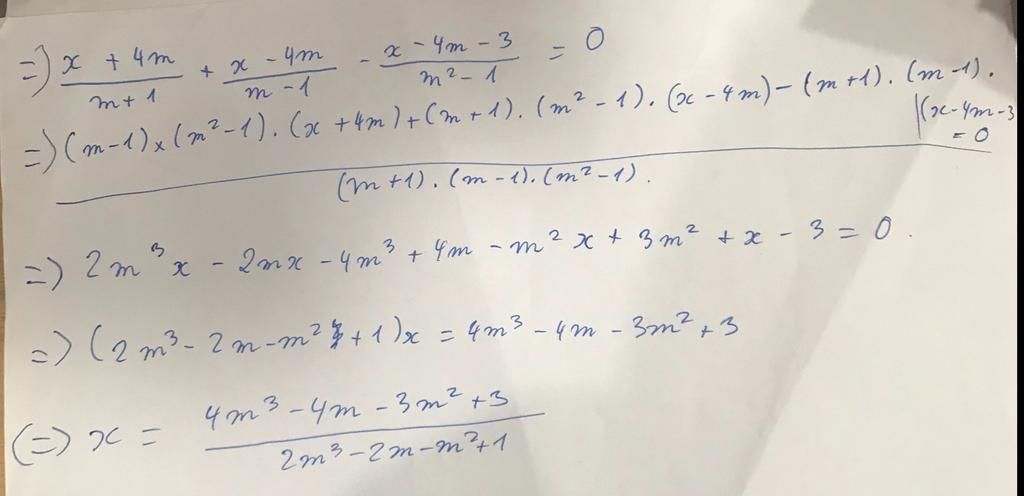 =) x + 4m / m + 1 + x - 4m / m - 1 - x - 4m - 3 / m² - 1 = 0
=) (m-1) x (m²-1) . (x + 4m) + (m + 1) . (m² - 1) . (x - 4m) - (m + 1) . (m - 1) . (x - 4m - 3 = 0
(m + 1) . (m - 1) . (m² - 1) .
=) 2m³x - 2mx - 4m³ + 4m - m²x + 3m² + x - 3 = 0 .
=) (2m³ - 2m - m² + 1)x = 4m³ - 4m - 3m² + 3
(=) x = 4m³ - 4m - 3m² + 3 / 2m³ - 2m - m² + 1